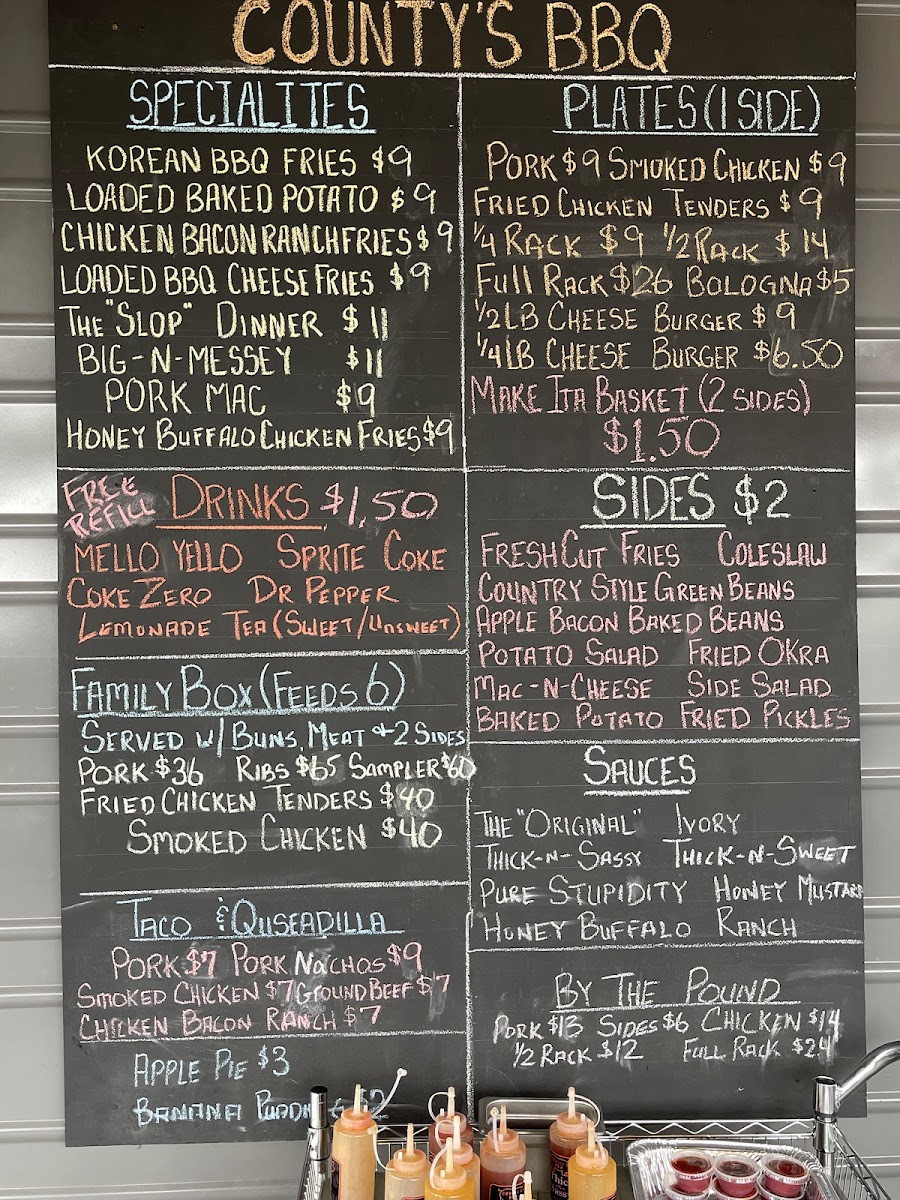 COUNTY'S BBQ
SPECIALITES
KOREAN BBQ FRIES $9
LOADED BAKED POTATO $9
CHICKEN BACON RANCH FRIES $9
LOADED BBQ CHEESE FRIES $9
THE "SLOP" DINNER $11
BIG-N-MESSEY $11
PORK MAC $9
HONEY BUFFALO CHICKEN FRIES $9
PLATES (1 SIDE)
PORK $9 SMOKED CHICKEN $9
FRIED CHICKEN TENDERS $9
1/4 RACK $9 1/2 RACK $14
FUll RACK $26 BOLOGNA $5
1/2 LB CHEESE BURGER $9
1/4 LB CHEESE BURGER $6.50
MAKE ITA BASKET (2 SIDES)
$1.50
FREE
REFILL
DRINKS $1.50
MELLO YELLO SPRITE COKE
COKE ZERO DR PEPPER
LEMONADE TEA (SWEET/UNSWEET)
SIDES $2
FRESH CUT FRIES COLESLAW
COUNTRY STYLE GREEN BEANS
APPLE BACON BAKED BEANS
POTATO SALAD FRIED OKRA
MAC-N-CHEESE SIDE SALAD
BAKED POTATO FRIED PICKLES
FAMILY BOX (FEEDS 6)
SERVED W/ BUNS, MEAT + 2 SIDES
PORK $36 RIBS $65 SAMPLER $60
FRIED CHICKEN TENDERS $40
SMOKED CHICKEN $40
SAUCES
THE "ORIGINAL" IVORY
THICK-N-SASSY THICK-N-SWEET
PURE STUPIDITY HONEY MUSTARD
HONEY BUFFALO RANCH
TACO & QUSEADILLA
PORK $7 PORK NACHOS $9
SMOKED CHICKEN $7 GROUND BEEF $7
CHICKEN BACON RANCH $7
BY THE POUND
PORK $13 SIDES $6 CHICKEN $14
1/2 RACK $12 FULL RACK $24
APPLE PIE $3
BANANA $2